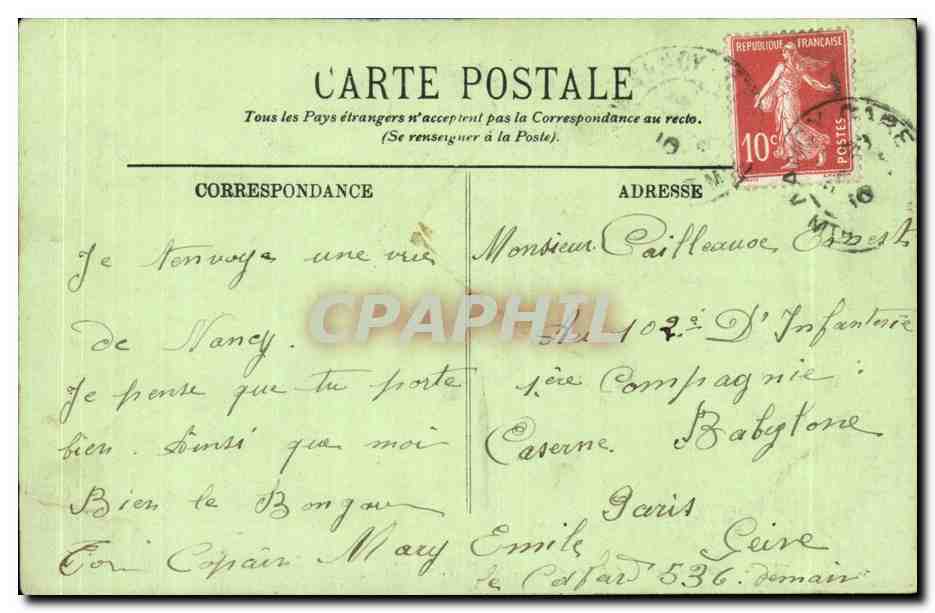 CARTE POSTALE
Tous les Pays étrangers n'acceptent pas la Correspondance au recto.
(Se renseigner à la Poste).
REPUBLIQUE FRANÇAISE
10c
POSTES
GARE
CORRESPONDANCE
Je t'envoye une vue
de Nancy.
Je pense que tu porte
bien. Ainsi que moi
Bien le Bonjour
Ton Copain Mary Emile
ADRESSE
Monsieur Cailleaux Ernest
Au 102e D'Infanterie
1ère Compagnie
Caserne Babylone
Paris
Seine
le 536 demain
CPAPHIL